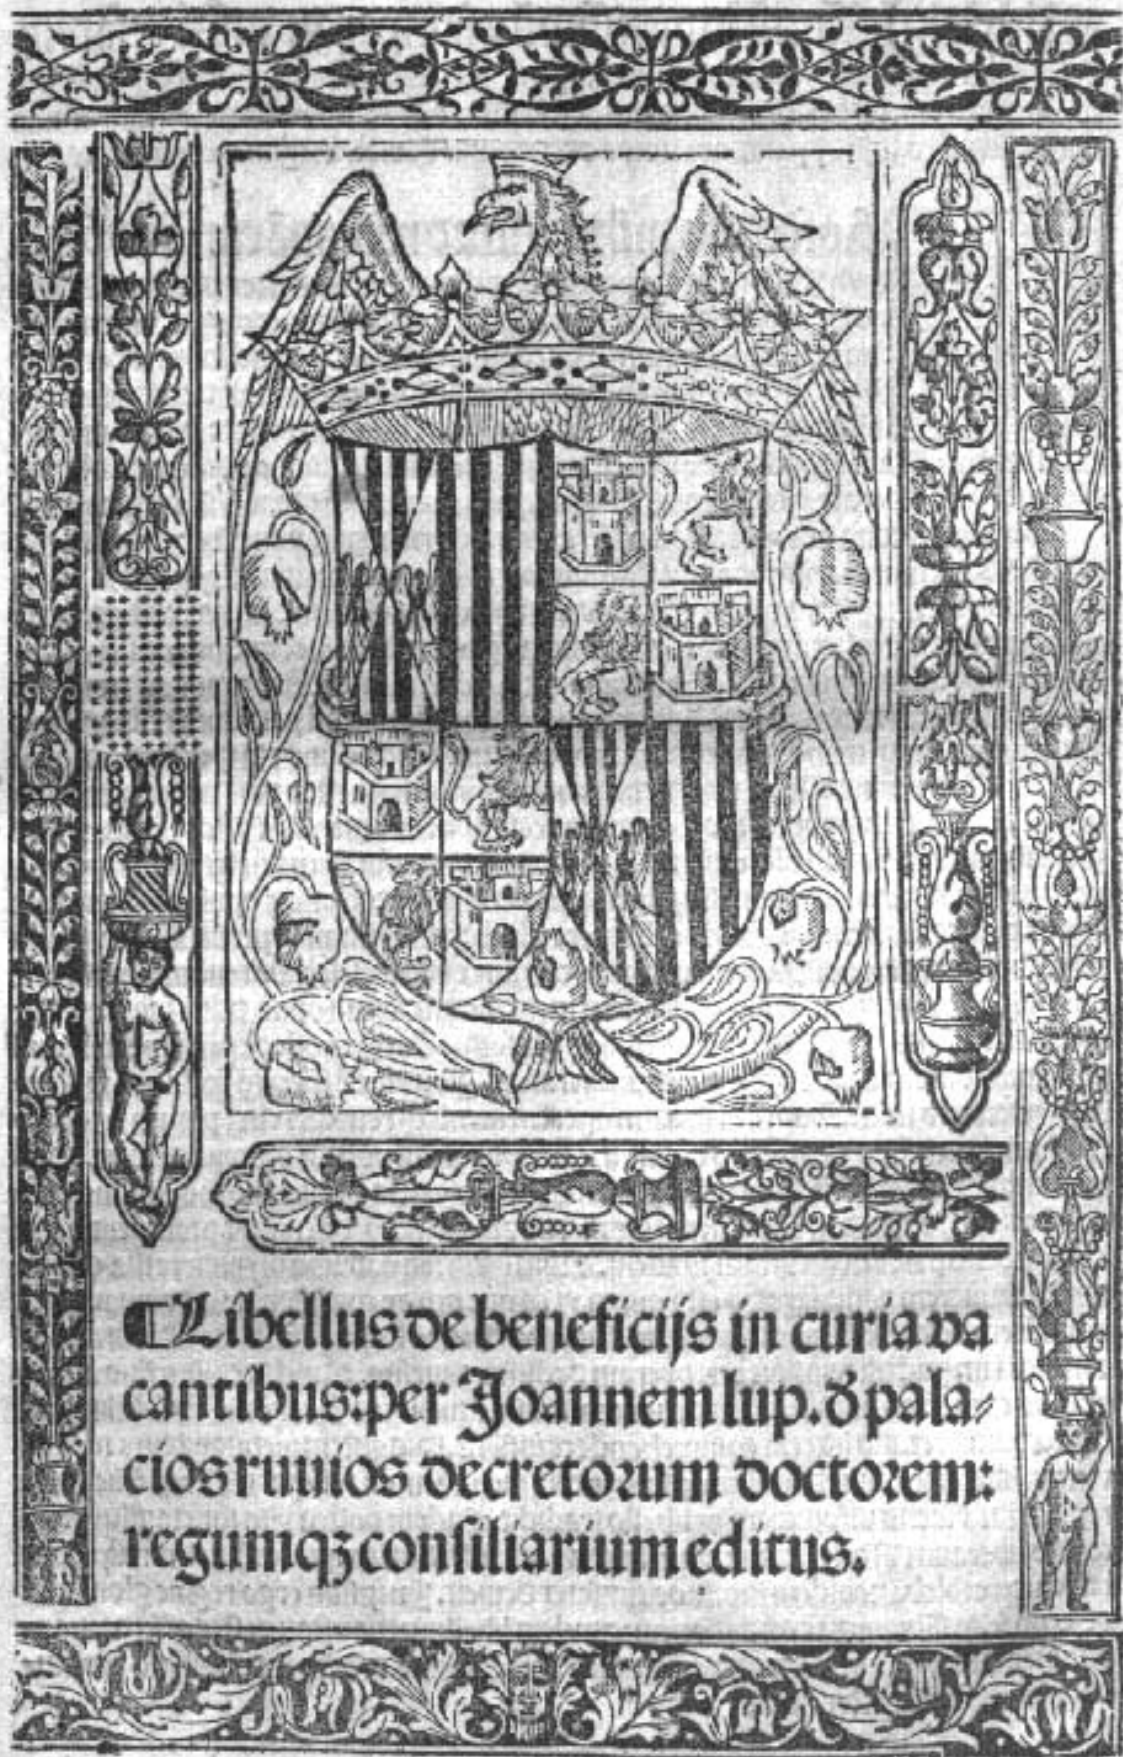 ¶Libellus de beneficijs in curia va
cantibus:per Joannem lup. d pala⸗
cios ruuios decretorum doctorem:
regumqꝫ consiliarium editus.